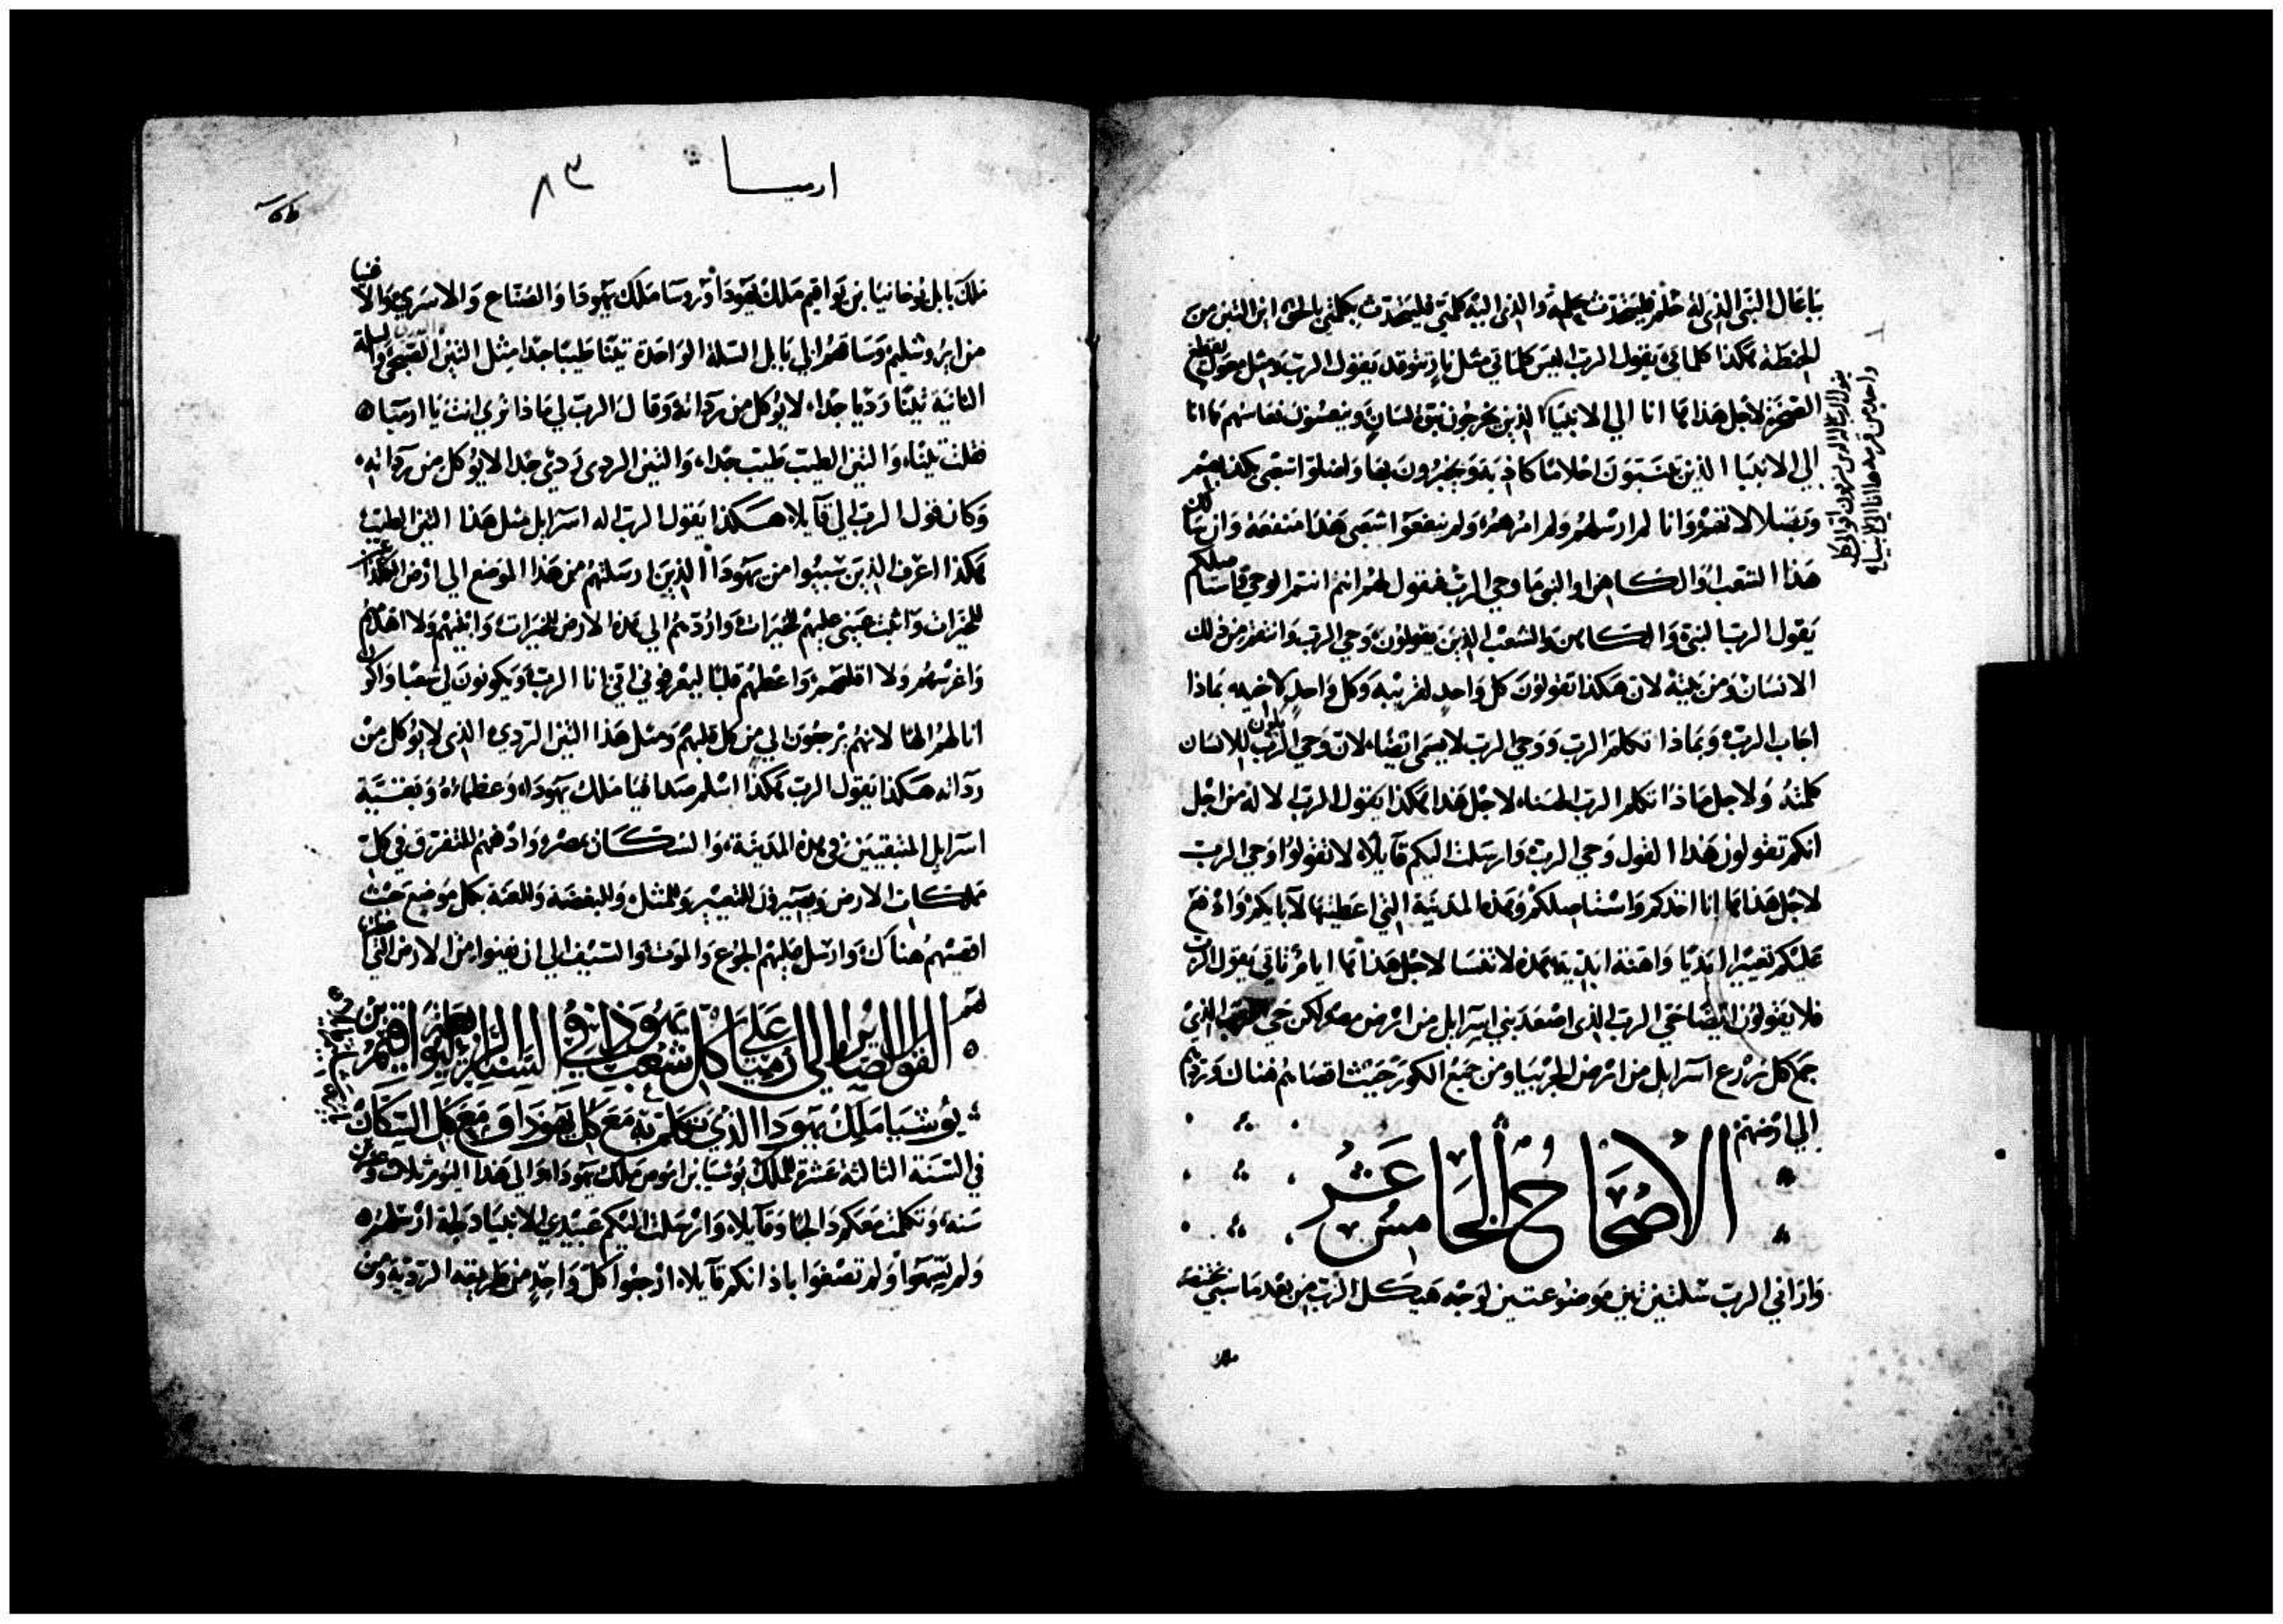 بابعال النبي الذي له حلم فليتحدث بحلمه والذي اليه كلمتي فليتحدث بكلمتي بالحق اين التبن من
الحنطة هكذا كلماتي يقول الرب اليس كلماتي مثل نار تتوقد يقول الرب ومثل معول يقطع
الصخر لاجل هذا ها انا الي الانبيا الذين يخرجون نبوة لسان وينعسون نعاسهم ها انا
الي الانبيا الذين يتنبون احلاما كاذبة ويخبرون بها واضلوا شعبي بكذبهم
وبضلالاتهم وانا لم ارسلهم ولم امرهم ولم ينفعوا شعبي هذا منفعة وان سالك
هذا الشعب او الكاهن او النبي ما وحي الرب فنقول لهم انتم انتم الوحي فاستاصلكم
يقول الرب النبي والكاهن والشعب الذين يقولون وحي الرب وانتقم من ذلك
الانسان ومن بيته لان هكذا تقولون كل واحد لقريبه وكل واحد لاخيه بماذا
اجاب الرب وبماذا تكلم الرب ووحي الرب لا يسمي ايضا لان وحي الرب يكون للانسان
كلمته ولاجل ماذا تكلم الرب الهنا لاجل هذا هكذا يقول الرب الاله من اجل
انكم تقولون هذا القول وحي الرب وارسلت اليكم قايلا لا تقولوا وحي الرب
لاجل هذا ها انا اخذكم واستاصلكم وهذه المدينة التي اعطيتها لابايكم وادفع
عليكم تعييرا ابديا واهنة ابدية هذه لا تنسا لاجل هذا ها ايام تاتي يقول الرب
فلا يقولون ايضا حي الرب الذي اصعد بني اسرايل من ارض مصر لكن حي الرب الذي
جمع كل زرع اسرايل من ارض الجربيا ومن جميع الكور حيث اقصاهم هناك وردهم
الي ارضهم
الاصحاح الخامس عشر
واراني الرب سلتين تين موضوعتين لوجه هيكل الرب من بعد ما سبي بختنصر
ملك
ارميا ٨٣
ملك بابل يوخانيا بن يواقيم ملك يهودا وروسا ملك يهودا والصناع والاسري والاغنيا
من ايروشليم وساقهم الي بابل السلة الواحدة تينا طيبا جدا مثل التين الصبحي والسلة
الثانية تينا رديا جدا لا يوكل من رداته وقال الرب لي ماذا تري انت يا ارميا
فقلت تينا والتين الطيب طيب جدا والتين الردي ردي جدا لا يوكل من رداته
وكان قول الرب الي قايلا هكذا يقول الرب اله اسرايل مثل هذا التين الطيب
هكذا اعرف الذين سبيوا من يهودا الذين ارسلتهم من هذا الموضع الي ارض الكلدان
للخيرات واثبت عيني عليهم للخيرات واردهم الي هذه الارض للخيرات وابنيهم ولا اهدم
واغرسهم ولا اقلعهم واعطهم قلبا ليعرفوني اني انا الرب ويكونون لي شعبا واكون
انا لهم الها لانهم يرجعون الي من كل قلبهم ومثل هذا التين الردي الذي لا يوكل من
رداته هكذا يقول الرب هكذا اسلم صداقيا ملك يهودا وعظماه وبقية
اسرايل المتبقيين في هذه المدينة والسكان بمصر وادفعهم للتفرق في كل
مملكات الارض ويصيرون للتعيير وللمثل وللبغضة وللعنة بكل موضع حيث
اقصيتهم هناك وارسل عليهم الجوع والموت والسيف الي ان يفنوا من الارض التي اعطيتها
لهم
القول الصاير الي ارميا علي كل شعب يهودا في السنة الرابعة ليواقيم بن
يوشيا ملك يهودا الذي تكلم به مع كل يهودا ومع كل السكان
في السنة الثالثة عشرة للملك يوشيا بن امون ملك يهودا والي هذا اليوم ثلاث وعشرين
سنة وتكلمت معكم دالجا وقايلا وارسلت اليكم عبيدي الانبيا دلجة ارسلهم
ولم تسمعوا ولم تصغوا باذانكم قايلا ارجعوا كل واحد من طريقه الردية ومن